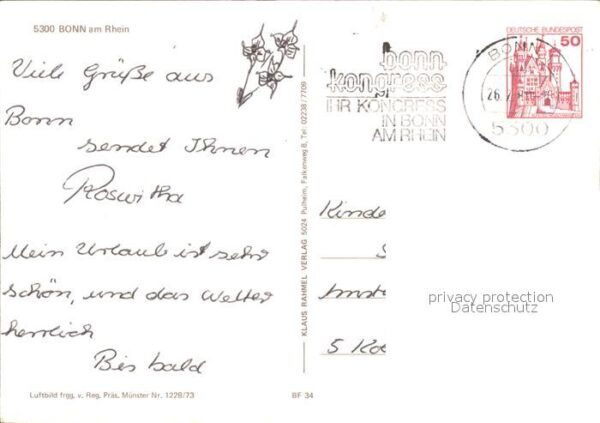 5300 BONN am Rhein
Viele Grüße aus
Bonn
sendet Ihnen
Roswitha
Mein Urlaub ist sehr
schön, und das Wetter
herrlich
Bis bald
Luftbild frgg. v. Reg. Präs. Münster Nr. 1228/73
BF 34
KLAUS RAHMEL VERLAG 5024 Pulheim, Falkenweg 8, Tel. 02238 / 7709
bonn
kongress
IHR KONGRESS
IN BONN
AM RHEIN
BONN
26.
5300
DEUTSCHE BUNDESPOST
50
Kinde
S
5 Kö
privacy protection
Datenschutz